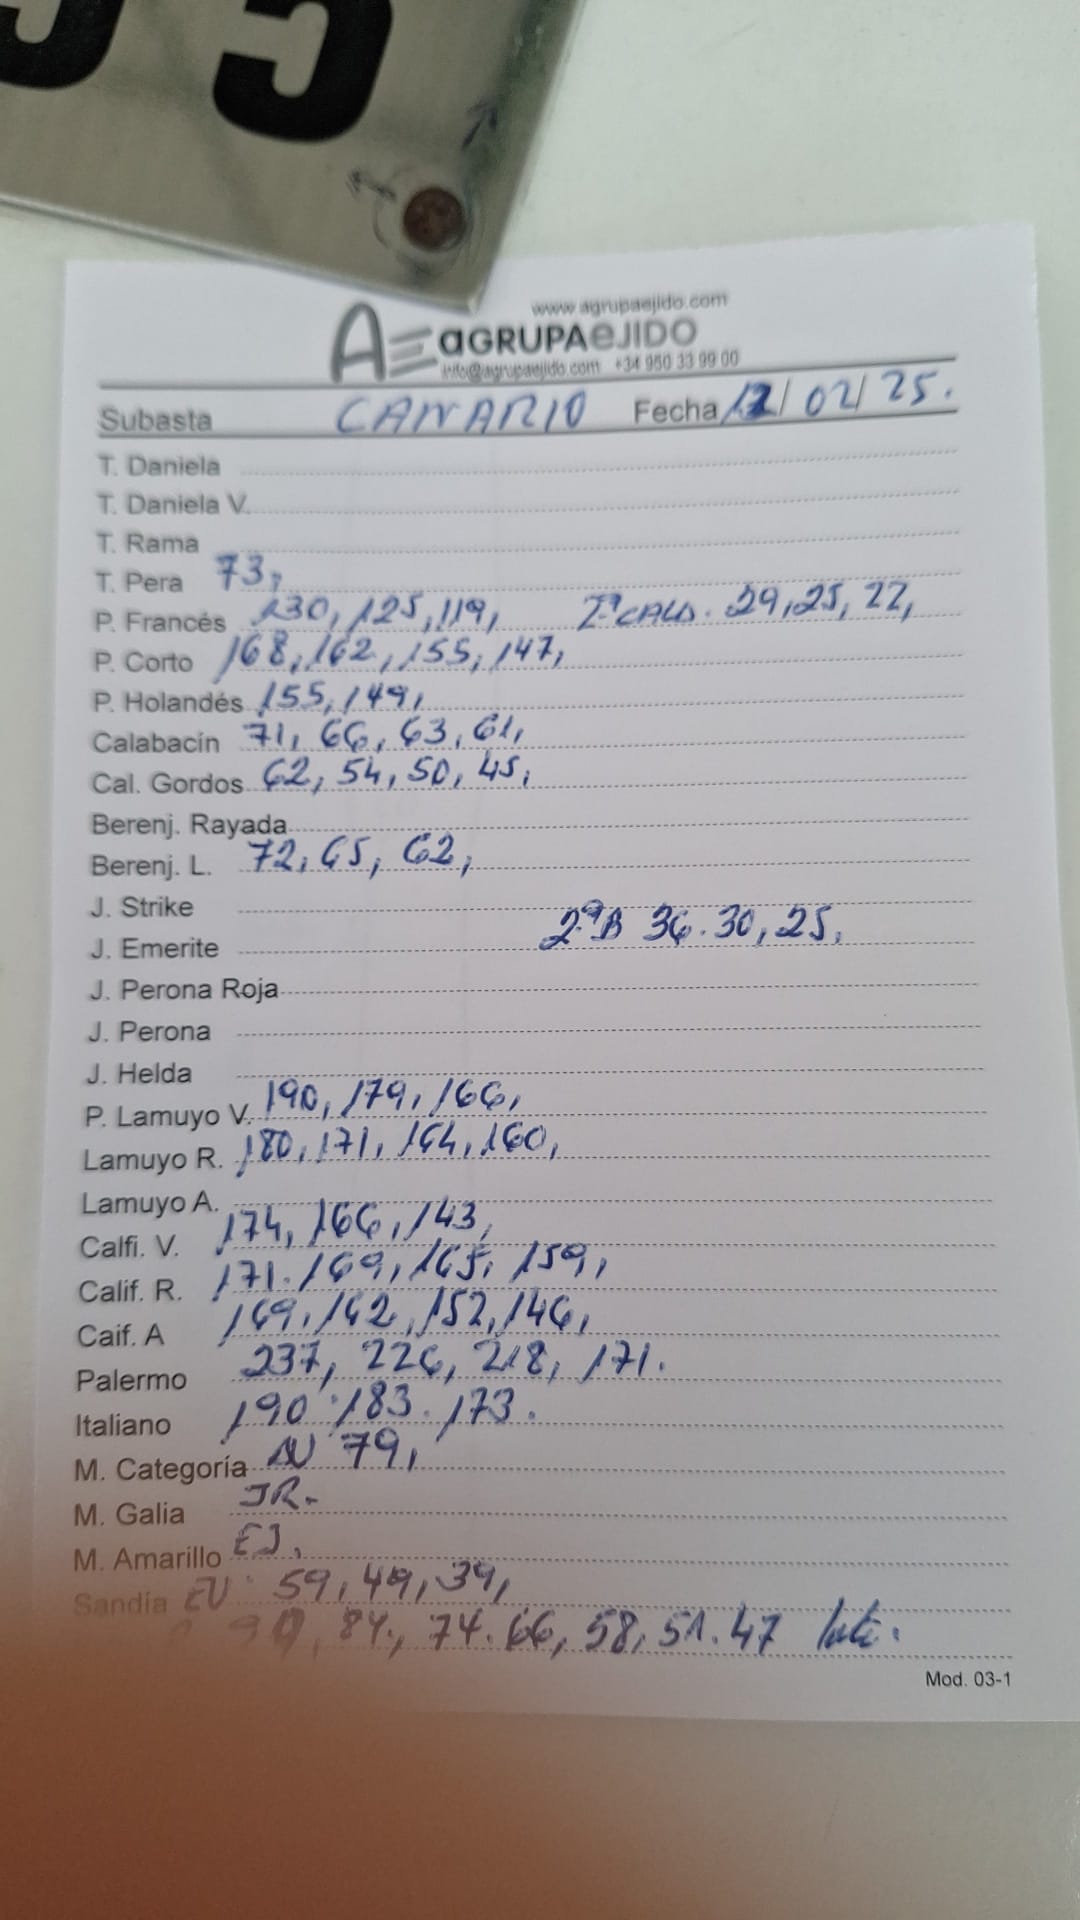 5
www.agrupaejido.com
AE aGRUPAeJIDO
info@agrupaejido.com +34 950 33 99 00
Subasta CANARIO Fecha 12/02/25.
T. Daniela
T. Daniela V.
T. Rama
T. Pera 73,
P. Francés 130, 125, 119, 2ª CALD. 29, 25, 22,
P. Corto 168, 162, 155, 147,
P. Holandés 155, 149,
Calabacín 71, 66, 63, 61,
Cal. Gordos 62, 54, 50, 45,
Berenj. Rayada
Berenj. L. 72, 65, 62,
J. Strike
J. Emerite 2ªB 36. 30, 25,
J. Perona Roja
J. Perona
J. Helda
P. Lamuyo V. 190, 179, 166,
Lamuyo R. 180, 171, 164, 160,
Lamuyo A.
Calfi. V. 174, 166, 143,
Calif. R. 171. 169, 165, 159,
Caif. A 169, 162, 152, 146,
Palermo 237, 226, 218, 171.
Italiano 190. 183. 173.
M. Categoría N 79,
M. Galia JR.
M. Amarillo EJ.
Sandía EU 59, 49, 39,
90, 84, 74. 66, 58, 51. 47
Mod. 03-1